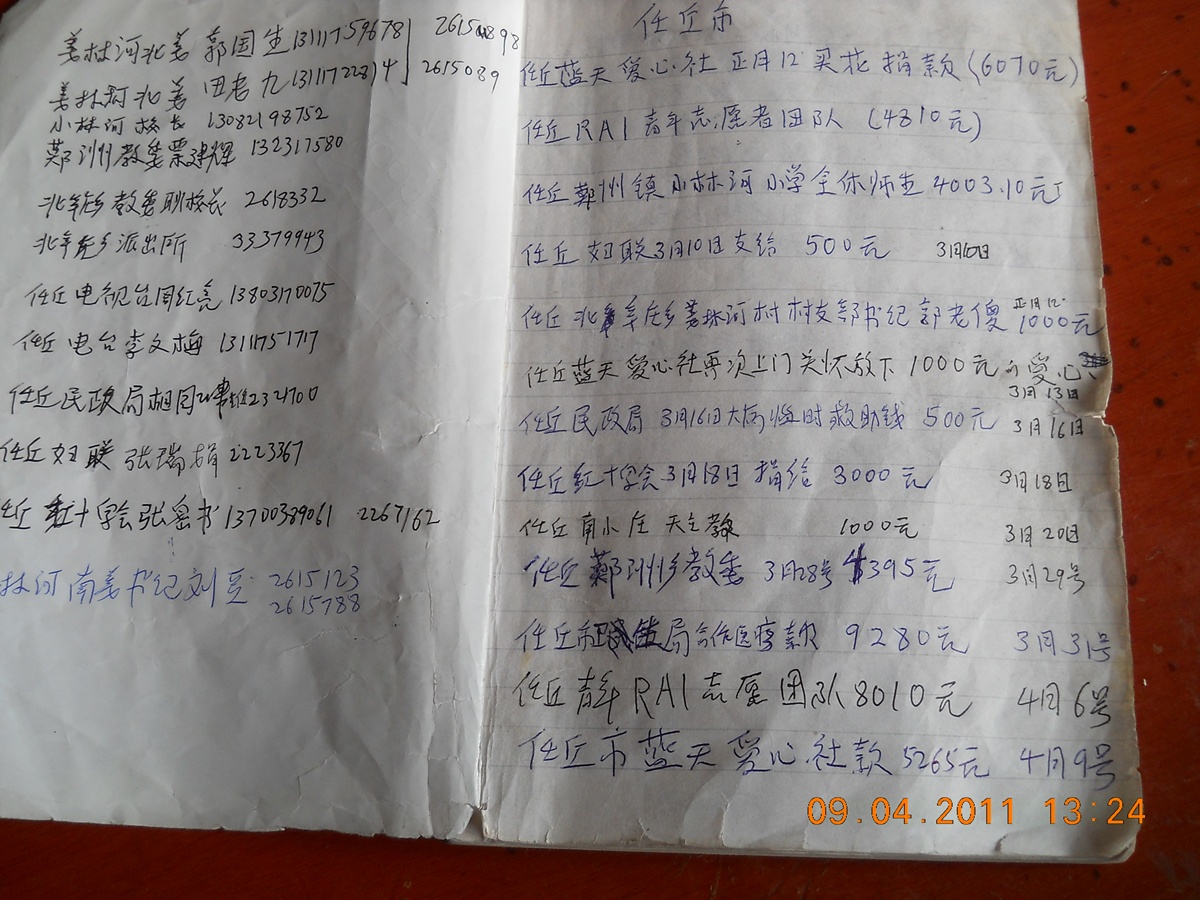 姜林河北姜 郭国生 13111759678 2615089
姜林河北姜 田老九 13111722814 2615089
小林河校长 13082198752
鄚州教委票建辉 132317580
北辛庄乡教委耿校长 2618332
北辛庄乡派出所 33379943
任丘电视台周红亮 13803170075
任丘电台李文梅 13111751717
任丘民政局 2321700
任丘妇联张瑞娟 2223367
任丘红十字会张秘书 13700389061 2267162
林河南姜书记刘豆 2615123
2615788
任丘市
任丘蓝天爱心社正月12买花捐款(6070元)
任丘RAI青年志愿者团队 (4810元)
任丘鄚州镇小林河小学全体师生4003.10元
任丘妇联3月10日支给 500元 3月10日
任丘北辛庄乡姜林河村村支部书记郭老傻 1000元 正月12
任丘蓝天爱心社再次上门关怀放下1000元的爱心 3月13日
任丘民政局 3月16日大病临时救助钱 500元 3月16日
任丘红十字会3月18日捐给 3000元 3月18日
任丘南小庄天主教 1000元 3月20日
任丘鄚州乡教委 3月28号 395元 3月29号
任丘市局合作医疗款 9280元 3月31号
任丘青年RAI志愿团队8010元 4月6号
任丘市蓝天爱心社款5265元 4月9号
09.04.2011 13:24